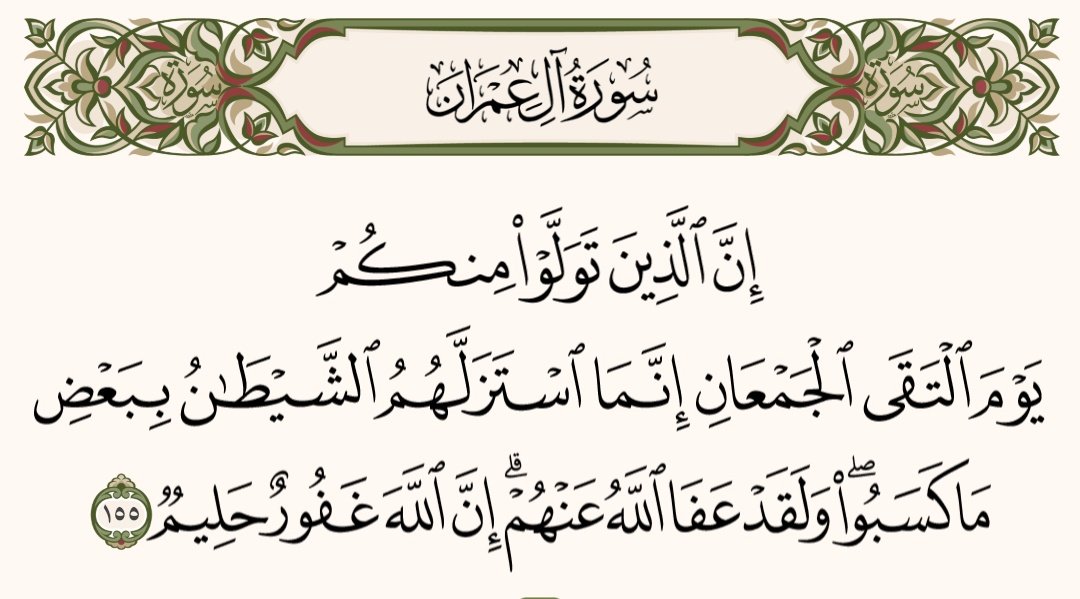 سُورَةُ آلِ عِمْرَانَ
سُورَةُ
سُورَةُ
إِنَّ ٱلَّذِينَ تَوَلَّوْا۟ مِنكُمْ
يَوْمَ ٱلْتَقَى ٱلْجَمْعَانِ إِنَّمَا ٱسْتَزَلَّهُمُ ٱلشَّيْطَٰنُ بِبَعْضِ
مَا كَسَبُوا۟ ۖ وَلَقَدْ عَفَا ٱللَّهُ عَنْهُمْ ۗ إِنَّ ٱللَّهَ غَفُورٌ حَلِيمٌ ١٥٥